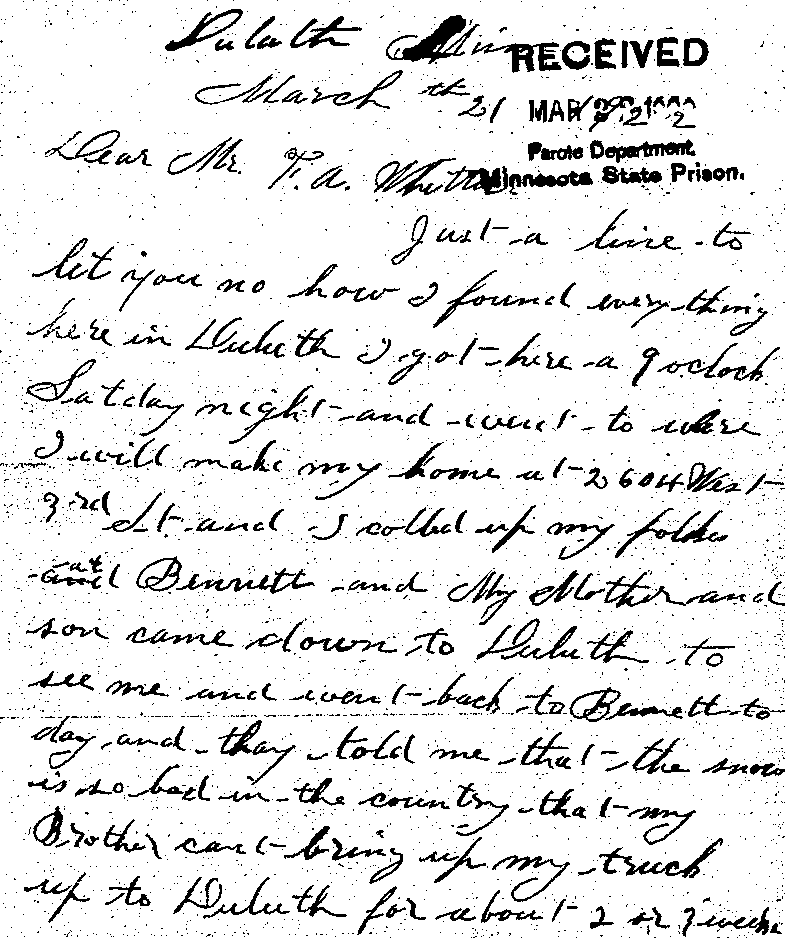 Duluth Minn
RECEIVED
March 21th
MAR 22
Parole Department,
Minnesota State Prison.
Dear Mr. F. A. Whittier
Just a line to
let you no how I found everything
here in Duluth I got here a 9 oclock
Satday night and went to where
I will make my home at 2604 West
3rd St and I colled up my folks
at Bennett and My Mother and
son came down to Duluth to
see me and went back to Bennett to
day and thay told me that the snow
is so bad in the country that my
Brother can't bring up my truck
up to Duluth for about 2 or 3 weeks